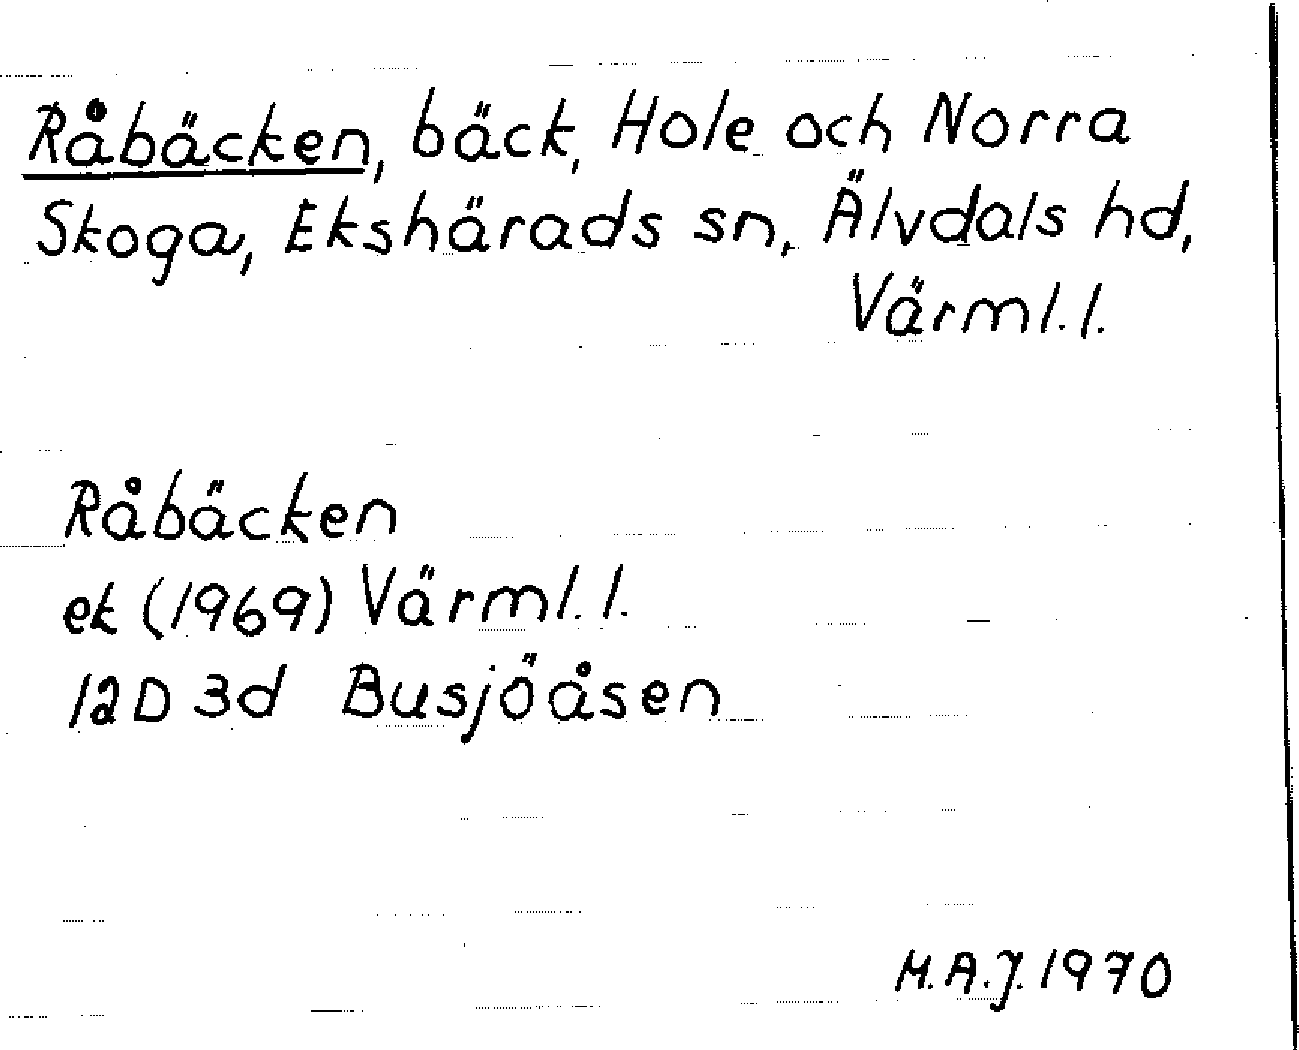 Råbäcken, bäck, Hole och Norra
Skoga, Ekshärads sn, Älvdals hd,
Värml.l.
Råbäcken
ek (1969) Värml.l.
12D 3d Busjöåsen
M.A.J. 1970